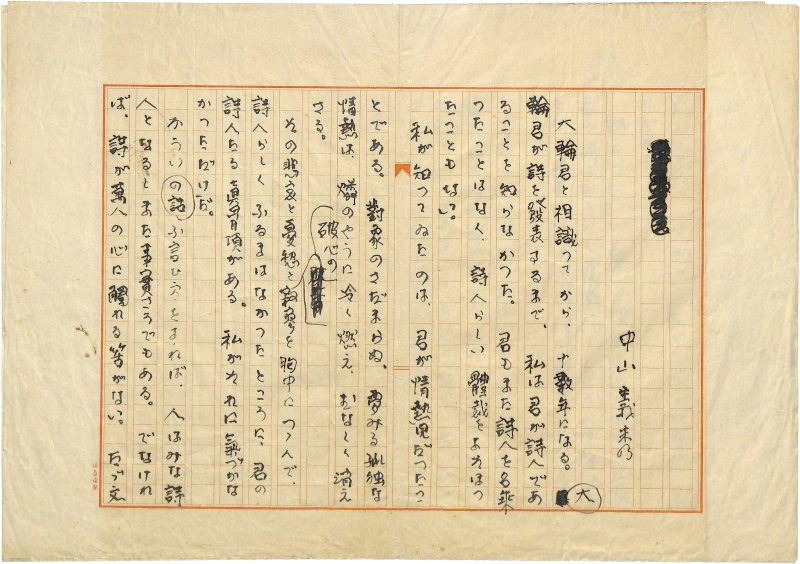 中山義秀
大輪君と相識つてから、十数年になる。大
輪君が詩を發表するまで、私は君が詩人であ
ることを知らなかつた。君もまた詩人を名乗
つたことはなく、詩人らしい體裁をよそほつ
たこともない。
私が知つてゐたのは、君が情熱児だつたこ
とである。對象のさだまらぬ、夢みる孤独な
情熱は、燐のやうに冷く燃え、むなしく消え
さる。
その悲哀と憂愁と破心の寂寥を胸中につゝんで、
詩人らしくふるまはなかつたところに、君の
詩人たる真骨頂がある。私がそれに氣づかな
かつただけだ。
かういの詩ふ言ひ方をすれば、人はみな詩
人となるしまた事實さうでもある。でなけれ
ば、詩が萬人の心に觸れる筈がない。たゞ文